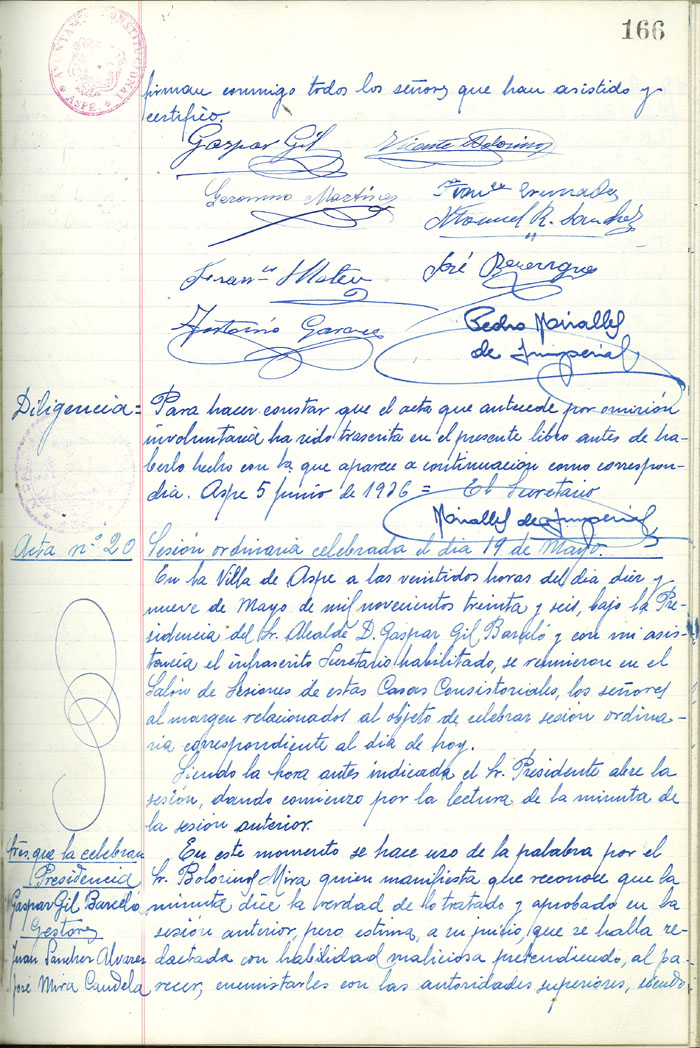 166
AYUNTAMIENTO CONSTITUCIONAL
* ASPE. *
firman conmigo todos los señores que han asistido y
certifico.
Gaspar Gil Vicente Bolorinos
Geronimo Martinez
Manuel R. Sanchez
Mateu José
Antonio
Pedro Mirallés
de Imperial
Diligencia = Para hacer constar que el acta que antecede por omisión
involuntaria ha sido trascrita en el presente libro antes de ha-
berlo hecho con la que aparece a continuacion como correspon-
dia. Aspe 5 Junio de 1936 = El Secretario
Mirallés de Imperial
Acta n.º 20 Sesión ordinaria celebrada el dia 19 de Mayo.
En la Villa de Aspe a las veintidos horas del dia diez y
nueve de Mayo de mil novecientos treinta y seis, bajo la Pre-
sidencia del Sr. Alcalde D. Gaspar Gil Barceló y con mi asis-
tancia el infrascrito Secretario habilitado, se reunieron en el
Salón de Sesiones de estas Casas Consistoriales, los señores
al margen relacionados al objeto de celebrar sesión ordina-
ria correspondiente al dia de hoy.
Siendo la hora antes indicada el Sr. Presidente abre la
sesión, dando comienzo por la lectura de la minuta de
la sesión anterior.
Sres. que la celebran
Presidencia
Gaspar Gil Barcelo
Gestores
Juan Sanchez Alvarez
José Mira Candela
En este momento se hace uso de la palabra por el
Sr. Bolorinos Mira quien manifiesta que reconoce que la
minuta dice la verdad de lo tratado y aprobado en la
sesión anterior, pero estima, a su juicio, que se halla re-
dactada con habilidad maliciosa pretendiendo, al pa-
recer, enemistarles con las autoridades superiores, siendo